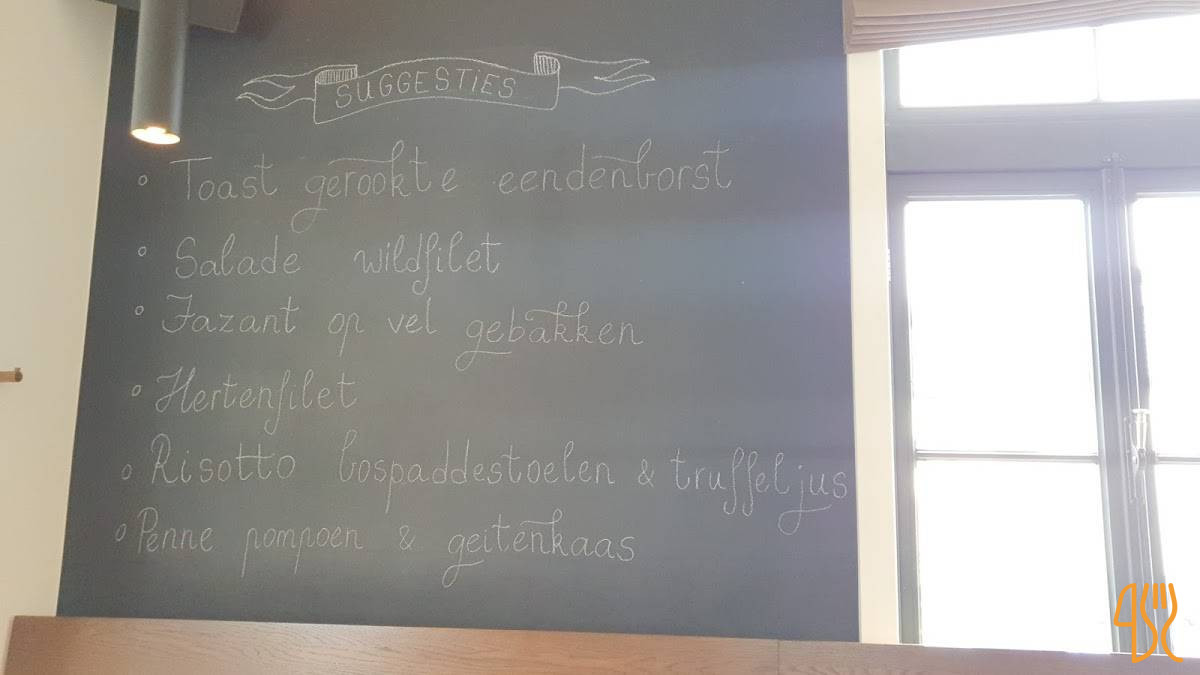 SUGGESTIES
Toast gerookte eendenborst
Salade wildfilet
Fazant op vel gebakken
Hertenfilet
Risotto bospaddestoelen & truffeljus
Penne pompoen & geitenkaas